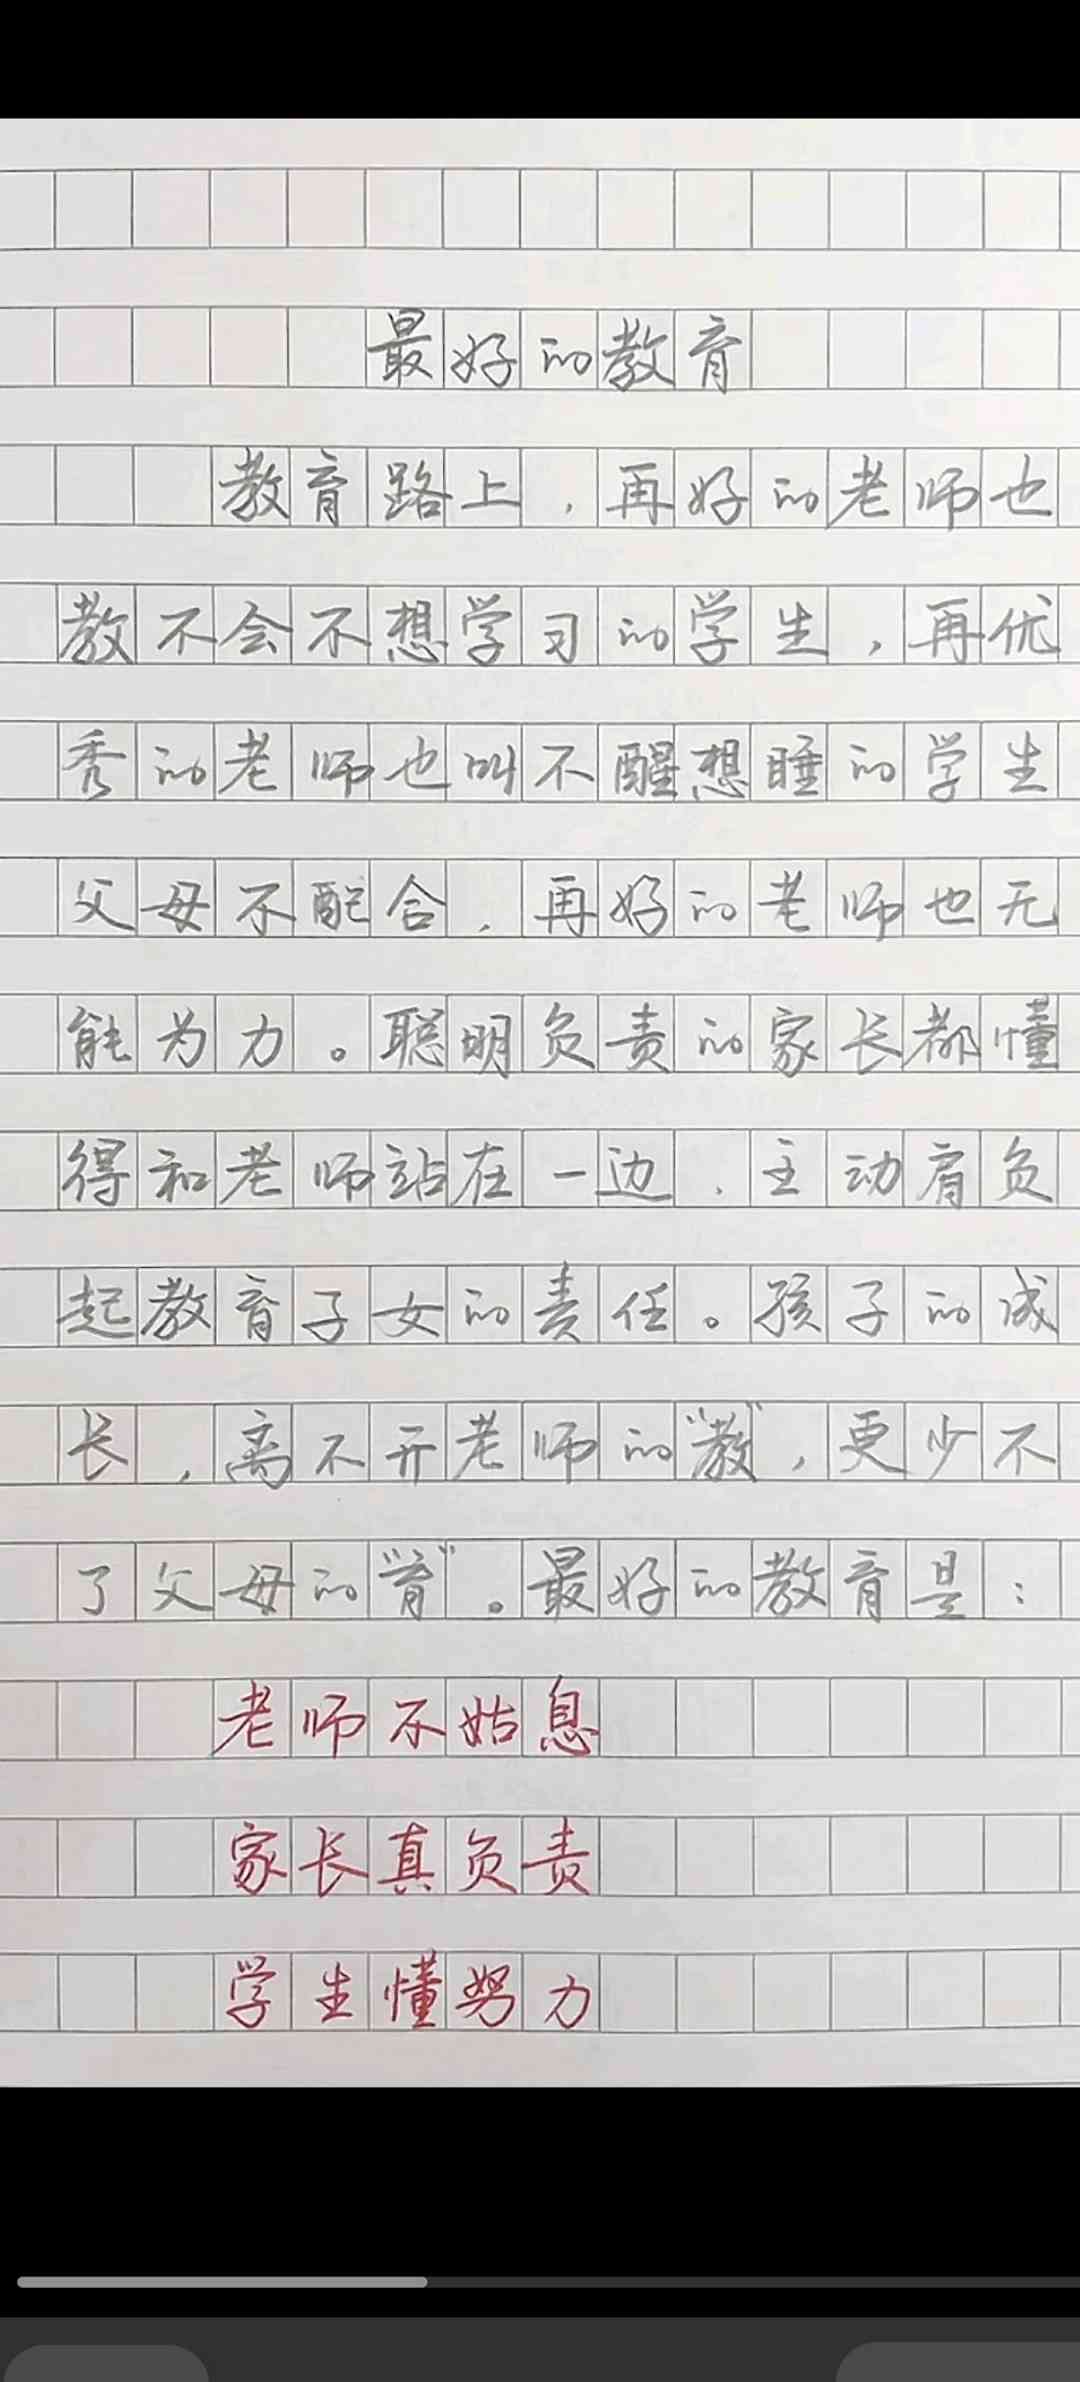 最好的教育
教育路上,再好的老师也
教不会不想学习的学生,再优
秀的老师也叫不醒想睡的学生
父母不配合,再好的老师也无
能为力。聪明负责的家长都懂
得和老师站在一边,主动肩负
起教育子女的责任。孩子的成
长,离不开老师的“教”,更少不
了父母的“育”。最好的教育是:
老师不姑息
家长真负责
学生懂努力